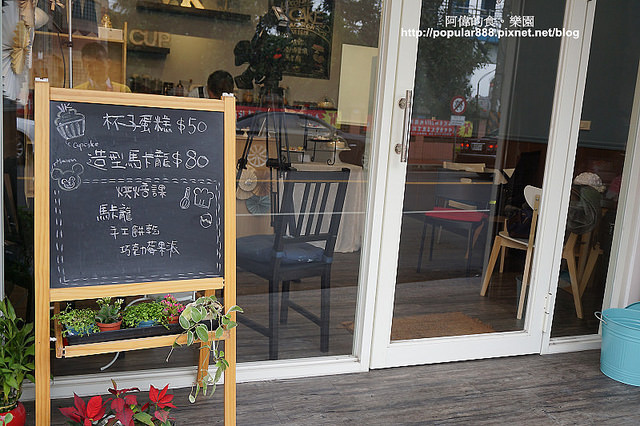 阿偉的食、樂園
http://popular888.pixnet.net/blog
CUP
杯子蛋糕 $50
Cupcake
造型馬卡龍 $80
Macaron
烘焙課
馬卡龍
手工餅乾
巧克力蘋果派